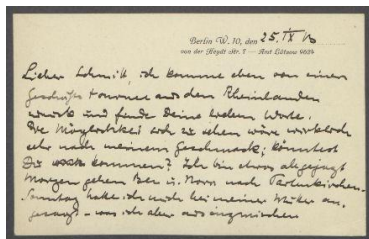 Berlin W. 10, den 25. IX
von der Heydt-Str. 7 — Amt Lützow 9634
Lieber Schmitt, ich komme eben von einer
Geschäfts tournee aus den Rheinlanden
zurück und finde Deine lieben Worte.
Die Möglichkeit Dich zu sehen wäre wirklich
sehr nach meinem Geschmack; könntest
Du kommen? Ich bin etwas abgejagt
Morgen gehen Ben u. Nora nach Partenkirchen.
Sonntag hatte ich mich bei meiner Mutter an-
gesagt - was ich aber